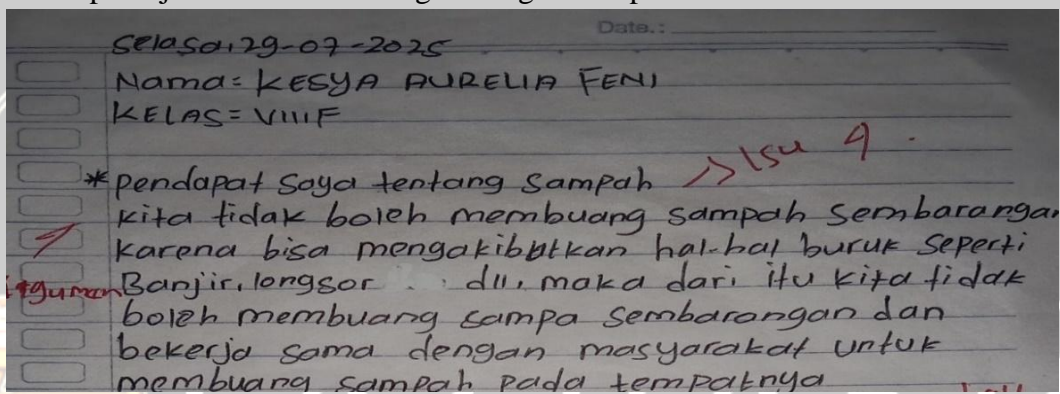 Date.:
Selasa, 29-07-2025
Nama = KESYA AURELIA FENI
KELAS = VIIIF
>> Isu 9
* pendapat saya tentang sampah
kita tidak boleh membuang sampah sembarangan
karena bisa mengakibatkan hal-hal buruk seperti
Argumen Banjir, longsor dll, maka dari itu kita tidak
boleh membuang sampa sembarangan dan
bekerja sama dengan masyarakat untuk
membuang sampah pada tempatnya